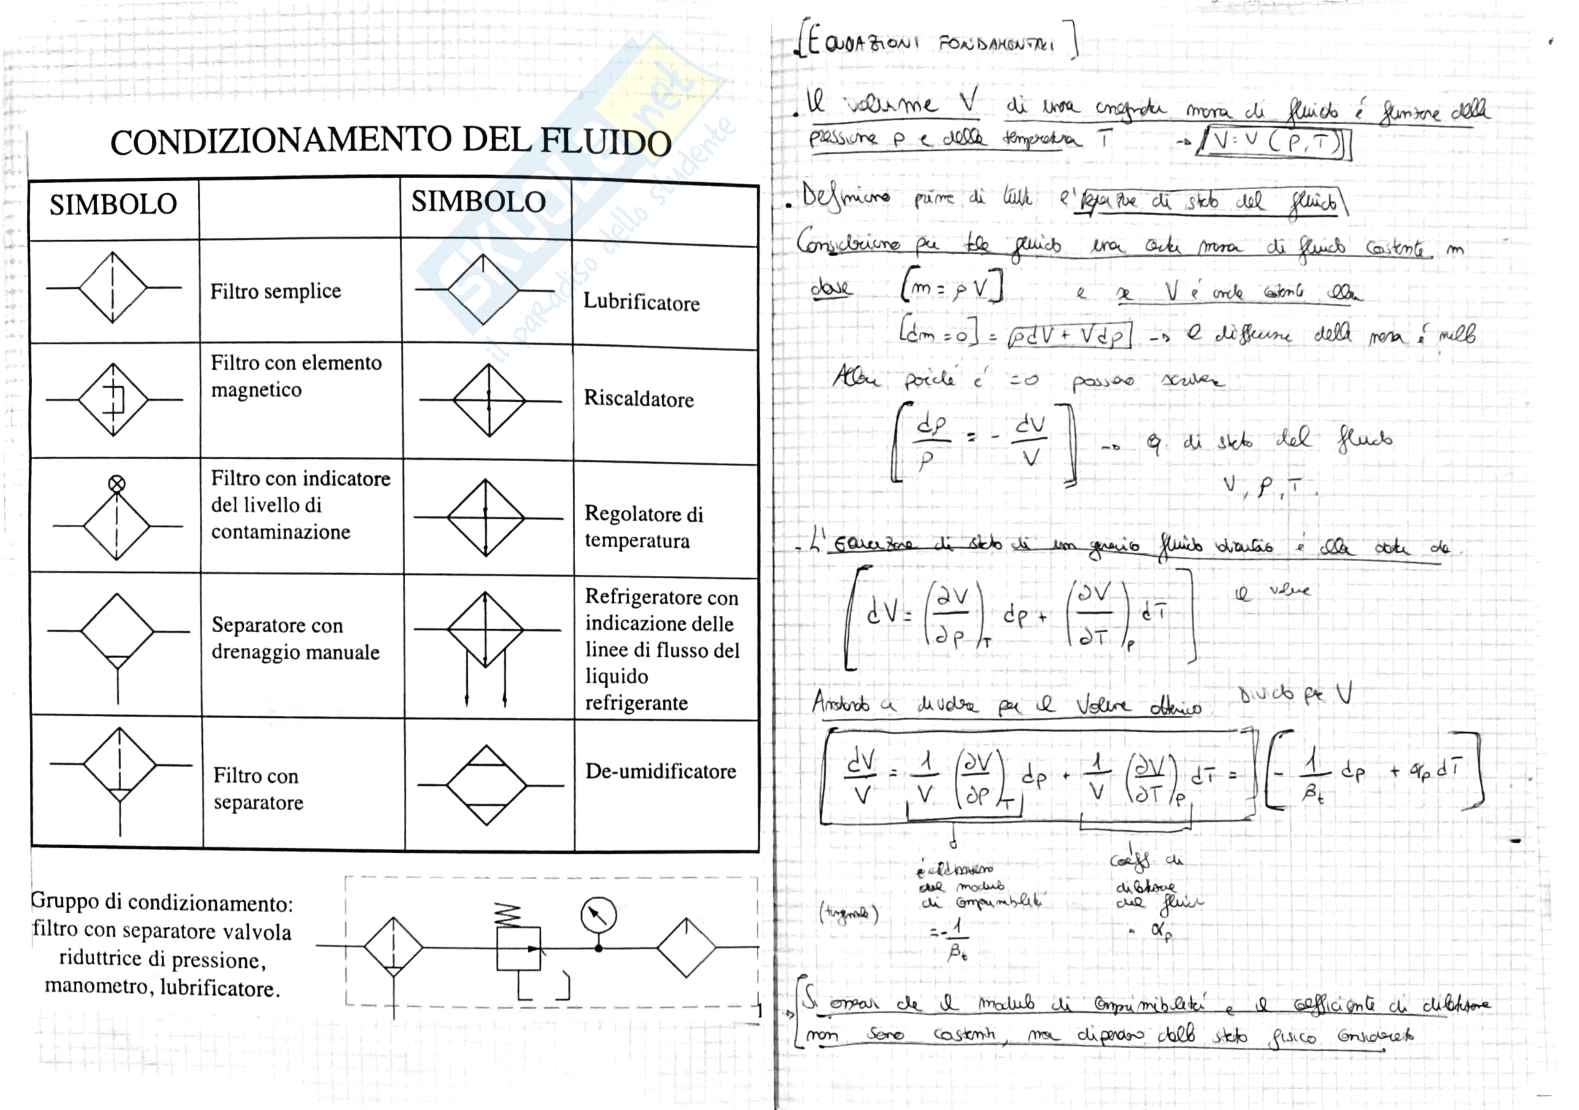 CONDIZIONAMENTO DEL FLUIDO
SIMBOLO
SIMBOLO
Filtro semplice
Lubrificatore
Filtro con elemento
magnetico
Riscaldatore
Filtro con indicatore
del livello di
contaminazione
Regolatore di
temperatura
Separatore con
drenaggio manuale
Refrigeratore con
indicazione delle
linee di flusso del
liquido
refrigerante
Filtro con
separatore
De-umidificatore
Gruppo di condizionamento:
filtro con separatore valvola
riduttrice di pressione,
manometro, lubrificatore.
1
SKUOLA.net
il paradiso dello studente
[EQUAZIONI FONDAMENTALI]
. Il volume V di una massa di fluido é funzione della
pressione p e della temperatura T → V=V(P,T)
. Definiamo prima di tutto l'equazione di stato del fluido
Consideriamo per tale fluido una certa massa di fluido costante m
dove [m = ρV] e se V é
[dm=0] = ρdV + Vdρ → il della massa é nullo
Allora poiché é =0 possiamo scrivere
[dρ/ρ = - dV/V] → eq. di stato del fluido
V, ρ, T.
. L'equazione di stato di un generico fluido é data da
[dV = (∂V/∂p)T dp + (∂V/∂T)p dT] il volume
Andando a dividere per il Volume Divido per V
[dV/V = 1/V (∂V/∂P)T dp + 1/V (∂V/∂T)p dT =] [- 1/βt dp + αp dT]
coeff di
del modulo dilatazione
di comprimibilità del fluido
= - 1/βt
αp
Si che il modulo di comprimibilitá e il coefficiente di dilatazione
non sono costanti, ma dipendono dallo stato fisico considerato